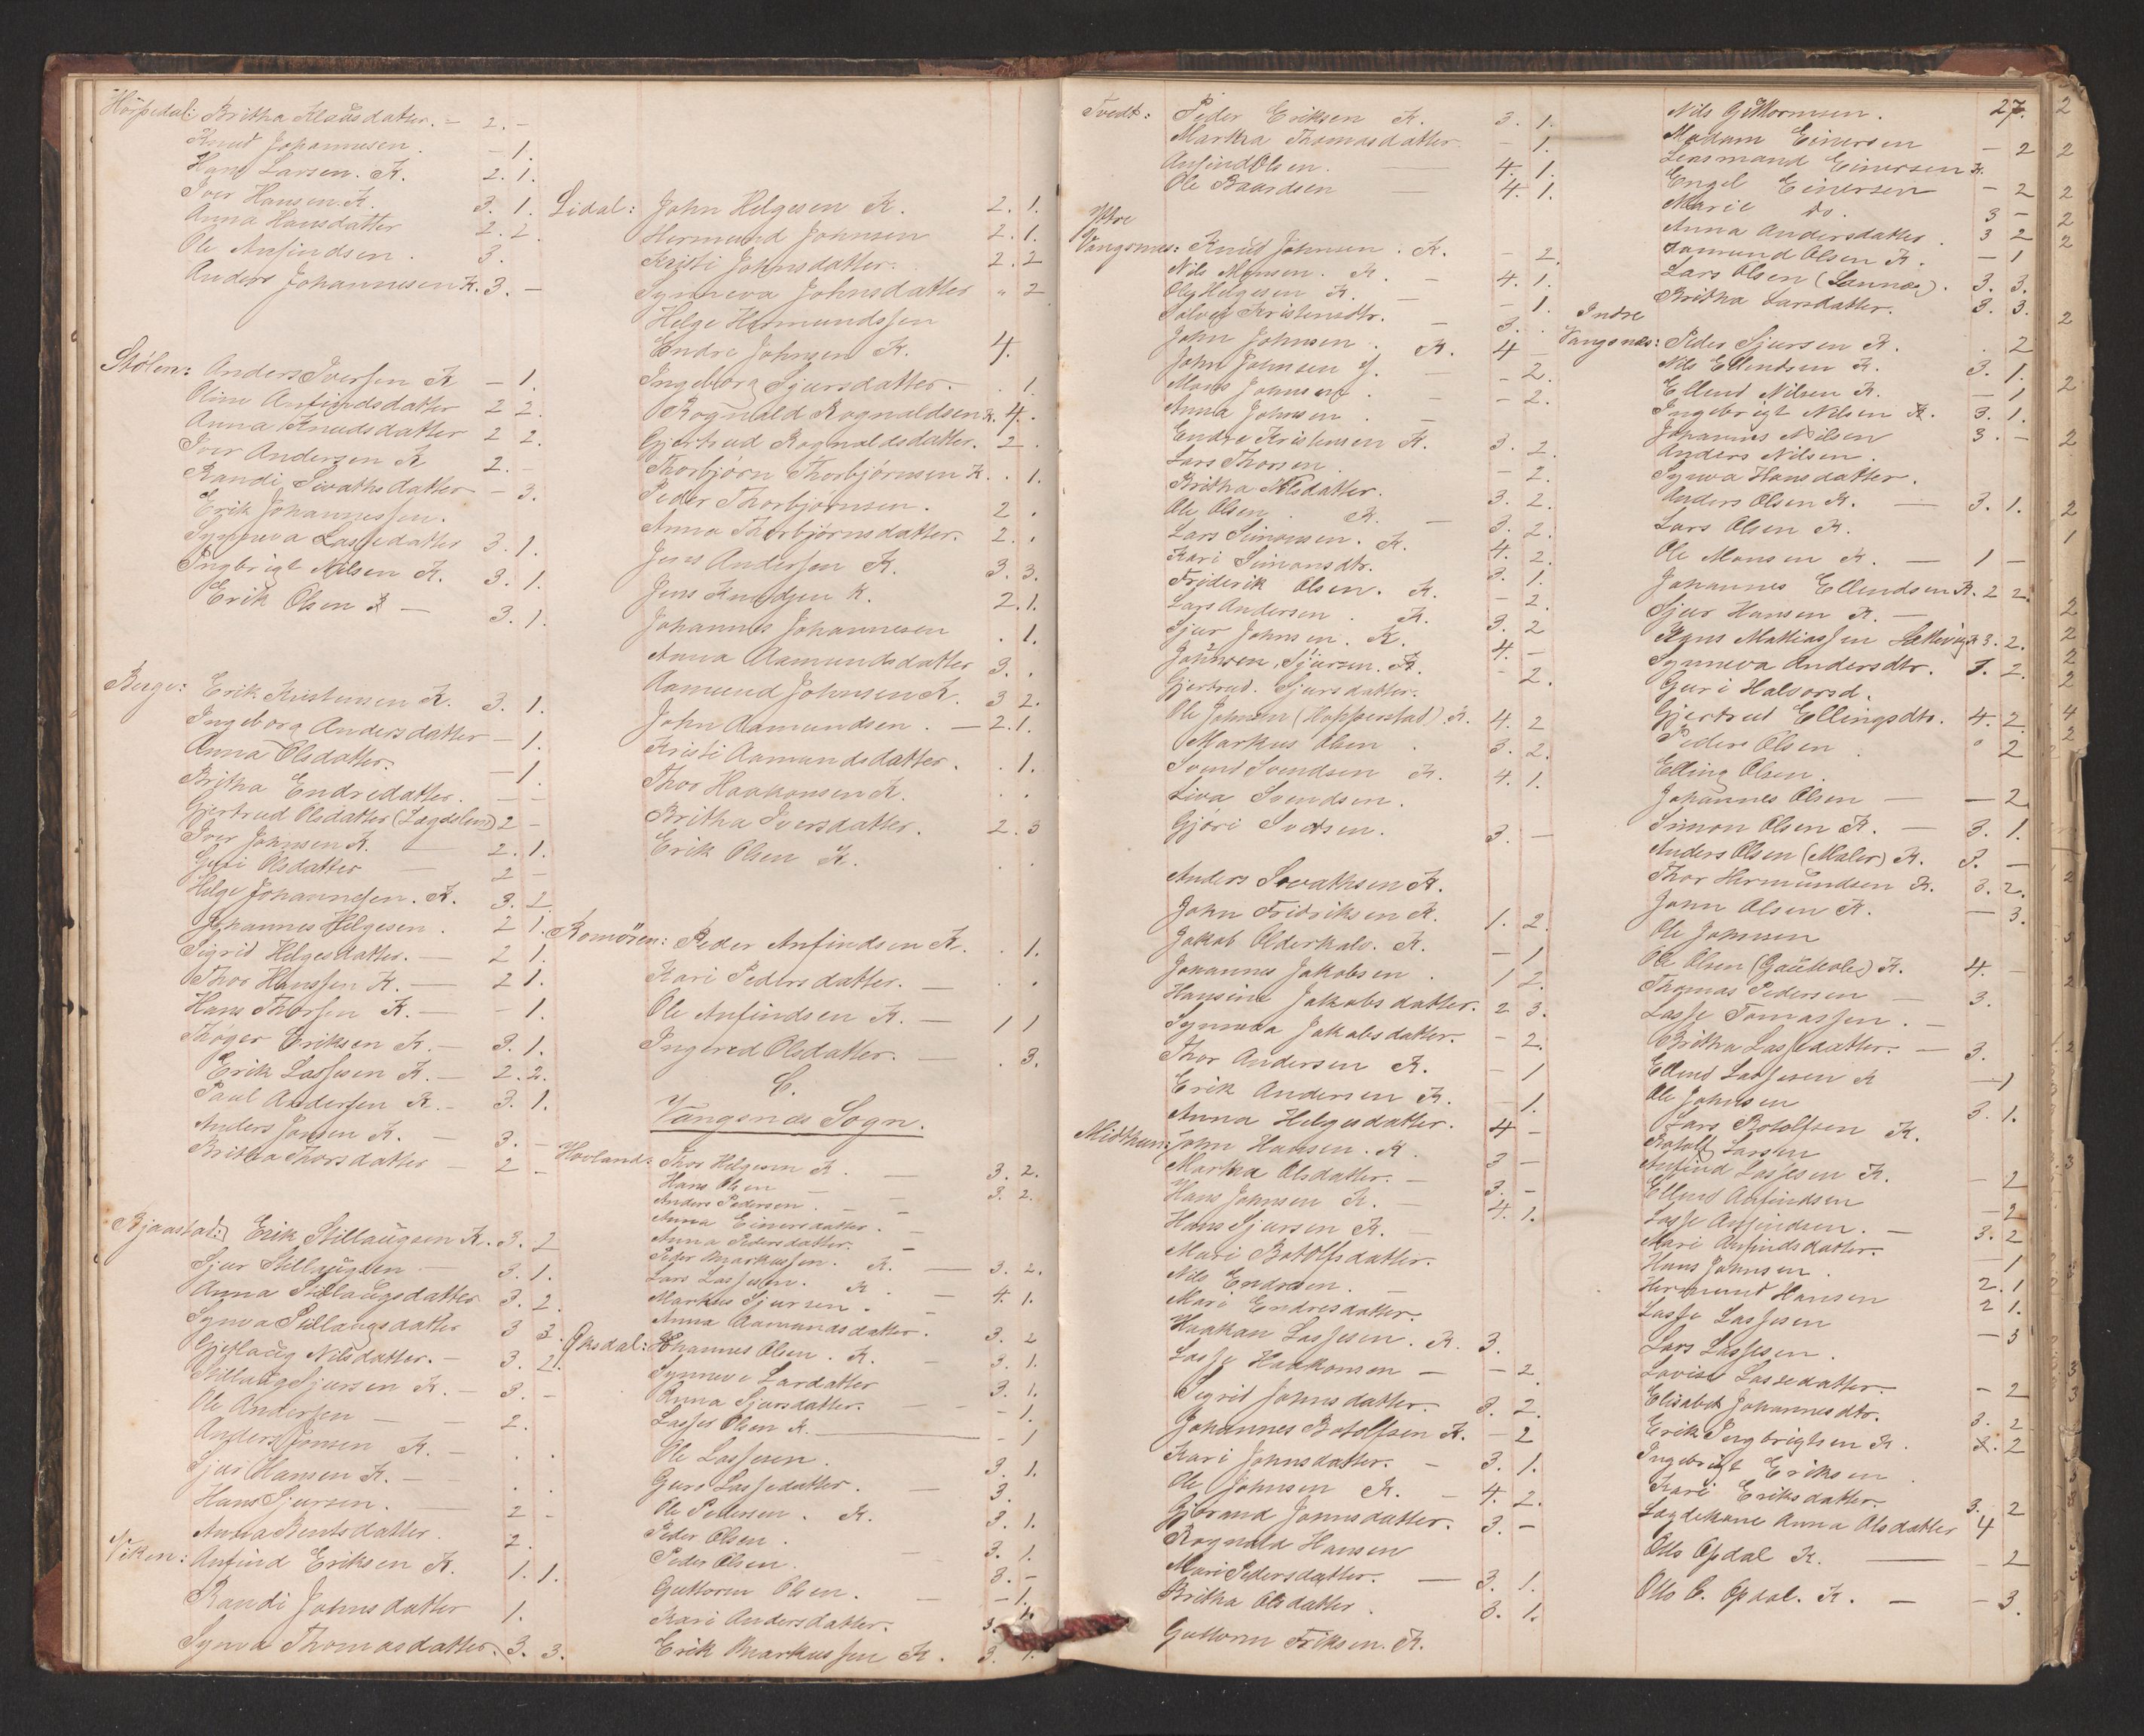 Hørpedal: Britha Klausdatter. — 2. –
Knud Johannesen. – 1.
Hans Larsen. K. 2. 1.
Iver Hansen. K. 3. 1.
Anna Hansdatter 2. 2.
Ole Anfindsen. 3.
Anders Johannesen K. 3. –
Stølen: Anders Iversen K – 1.
Oline Anfindsdatter 2 2.
Anna Knudsdatter 2 2.
Iver Andersen K 2. –
Randi Sivathsdatter – 3.
Erik Johannessen.
Synneva Lassedatter 3. 1.
Ingbrigt Nilsen K. 3. 1.
Erik Olsen K — 3. 1.
Berge: Erik Kristensen K. 3. 1.
Ingeborg Andersdatter – 1.
Anna Olsdatter. – 1.
Britha Endredatter. – –
Gjertrud Olsdatter (Lægdslem) 2 –
Iver Johnsen K. 2. 1.
Guri Olsdatter — 2 –
Helge Johannesen. K. 3. 2.
Johannes Helgesen. 2 1.
Sigrid Helgesdatter. — 2 1.
Thor Hanssen K. — 2 1.
Hans Thorsen K. — – 1.
Thøger Eriksen K. — 3. 1.
Erik Lassesen K. — 2. 2.
Paul Andersen K. – 3. 1.
Anders Jonsen K. — 3. –
Britha Thorsdatter — 2 –
Bjaastad: Erik Stillaugsen K. 3. 2
Sjur Stillaugsen — 3. 1.
Anna Stillaugsdatter 3. 2.
Synva Stillaugsdatter 3 3.
Gjertlaug Nilsdatter. – 3. 2.
Stillaug Sjursen K. – 3. –
Ole Andersen — – 2.
Anders Jonsen K. – . .
Sjur Hansen K. — . .
Hans Sjursen. — 2 –
Anna Bentsdatter. 2.
Viken: Anfind Eriksen K. 1. 1.
Randi Johnsdatter 1.
Synva Thomasdatter. 3. 3.
Lidal: John Helgesen K. 2. 1.
Hermund Johnsen 2. 1.
Kristi Johnsdatter. 2. 2
Synneva Johnsdatter " 2
Helge Hermundssen
Endre Johnsen K. 4.
Ingeborg Sjursdatter. . 1.
Rognald Rognaldsen K. 4.
Gjertrud Rognaldsdatter. 2 .
Thorbjørn Thorbjørnsen K. . 1.
Peder Thorbjørnsen. 2 .
Anna Thorbjørnsdatter. 2. .
Jens Andersen K. 3. 3.
Jens Knudsen K. 2. 1.
Johannes Johannesen . 1.
Anna Aamundsdatter 3. .
Aamund Johnsen K. 3 2.
John Aamundsen. — 2. 1.
Kristi Aamundsdatter. . 1.
Thor Haakonsen K. . .
Britha Iversdatter. 2. 3
Erik Olsen K. . .
Romören: Peder Anfindsen K. . 1.
Kari Pedersdatter. — . .
Ole Anfindsen K. — 1 1
Ingered Olsdatter. — . 3.
C.
Vangsnes Sogn.
Hovland: Thor Helgesen K. — 3. 2.
Hans Olsen — – 3. 2.
Anders Pedersen. – –
Anna Einersdatter. –
Anna Pedersdatter. –
Peder Markussen. K. — 3. 2.
Lars Lassesen. K — 4. 1.
Markus Sjursen. –
Anna Aamundsdatter. 3. 2
Øksdal: Johannes Olsen. K. – 3. 1.
Synneve Lardatter 3. 1.
Anna Sjursdatter. – – 1.
Lasses Olsen K. — – 1
Ole Lassesen. 3. 1.
Guro Lassedatter. — 3.
Ole Pedersen. K. 3. 1.
Peder Olsen.
Peder Olsen. — 3. 1.
Guttorm Olsen. — 3. –
Kari Andersdatter. – 1.
Erik Markussen K. 3. 1.
Tvedt: Peder Eriksen K. 3. 1.
Martha Thomasdatter – 1.
Anfind Olsen. — 4. 1.
Ole Baardsen — 4. 1.
Ytre
Vangsnes: Knud Johnsen. K. – 2.
Nils Monsen. K. – 4. 1.
Ole Helgesen K. — – 1.
Solvei Kristensdtr. – 3. .
John Johnsen. K. 4 –
John Johnsen J. – – 2.
Mons Johnsen. – – 2.
Anna Johnsen. –
Endre Kristensen K. 3. 2.
Lars Thorsen. – 2.
Britha Nilsdatter. 3. 2.
Ole Olsen. K. — 3. 2.
Lars Simonsen. K. 4. 2.
Kari Simonsdtr. 3. 1.
Friderik Olsen. K. – 2.
Lars Andersen. K. 3. 2
Sjur Johnsen. K. 4. –
Johnsen, Sjursen. K. – 2.
Gjertrud. Sjursdatter.
Ole Johnsen (Hopperstad). K. 4. 2
Markus Olsen. 3. 2.
Svend Svendsen K. 4. 1.
Liva Svendsen.
Gjøri Svensen. 3. –
Anders Sivathsen K.
John Fridriksen K. 1. 2.
Jakob Olderkalv. K. – 1
Johannes Jakobsen. 1 2.
Hansine Jakobsdatter. 2 3.
Synneva Jakobsdatter. – 2.
Thor Andersen K. – 1
Erik Andersen K. – 1.
Anna Helgesdatter. 4 –
Midthun: John Hansen. K. 3 –
Martha Olsdatter. – 3. –
Hans Johnsen K. – 4. 1.
Hans Sjursen K. –
Mari Botolfsdatter.
Nils Endresen. –
Mari Endresdatter.
Haakon Lassesen. K. 3.
Lasse Haakonsen — – 2.
Sigrid Johnsdatter. 3. 2.
Johannes Botolfsen K. – 2
Kari Johnsdatter. – 3. 1.
Ole Johnsen K. – 4. 2.
Gjørand Johnsdatter. 3. –
Rognald Hansen
Mari Pedersdatter. — 3. 1.
Britha Olsdatter. 3. 1.
Guttorm Eriksen. K.
27.
Nils Guttormsen.
Madam Einersen – 2
Lensmand Einersen K.
Engel Einersen – 2
Marie do. 3 –
Anna Andersdatter. 3 2
Aamund Olsen K. – 1
Lars Olsen (Lannæs). 3. 3.
Britha Larsdatter. 3. 3.
Indre
Vangsnæs: Peder Sjursen K. . 2
Nils Ellendsen K. 3. 1.
Ellend Nilsen K. – 1
Ingebrigt Nilsen K. 3. 1.
Johannes Nilsen 3. –
Anders Nilsen.
Synva Hansdatter.
Anders Olsen K. — 3. 1.
Lars Olsen K.
Ole Monsen K. — 1 –
Johannes Ellendsen K. 2 2.
Sjur Hansen K. —
Mathiassen 3. 2.
Synneva Andersdtr. 3. 2.
Guri Halvorsd.
Gjertrud Ellingsdtr. 4. 2.
Peder Olsen. 2
Elling Olsen.
Johannes Olsen — – 2
Simon Olsen K. – 3. 1.
Anders Olsen (Maler) K. 3. –
Thor Hermundsen K. 3. 2.
John Olsen K. – 3.
Ole Johnsen
Ole Olsen K. 4. –
Thomas Pedersen — 3.
Lasse Tomassen. –
Britha Lassedatter. — 3.
Ellend Lassesen K – 1
Ole Johnsen 3. 1.
Lars Botolfsen K.
Botolf Larsen
Anfind Lassesen K. – 2
Ellend Anfindsen
Lasse Anfindsen. – – 2
Mari Anfindsdatter. 3. 2
Hans Johnsen. – 1
Hermund Hansen 2. 1
Lasse Lassesen 2 1.
Lars Lassesen. – 3
Lovise Lassedatter. – 2
Elisabet Johannesdtr. 3. 2
Erik Ingbrigtsen K. 3. 2
Ingebrigt Eriksen.
Kari Eriksdatter. 3. 2
Lægdekone Anna Olsdatter 4
Otto Opdal K. — – 2
Otto C. Opdal. K. — – 3.